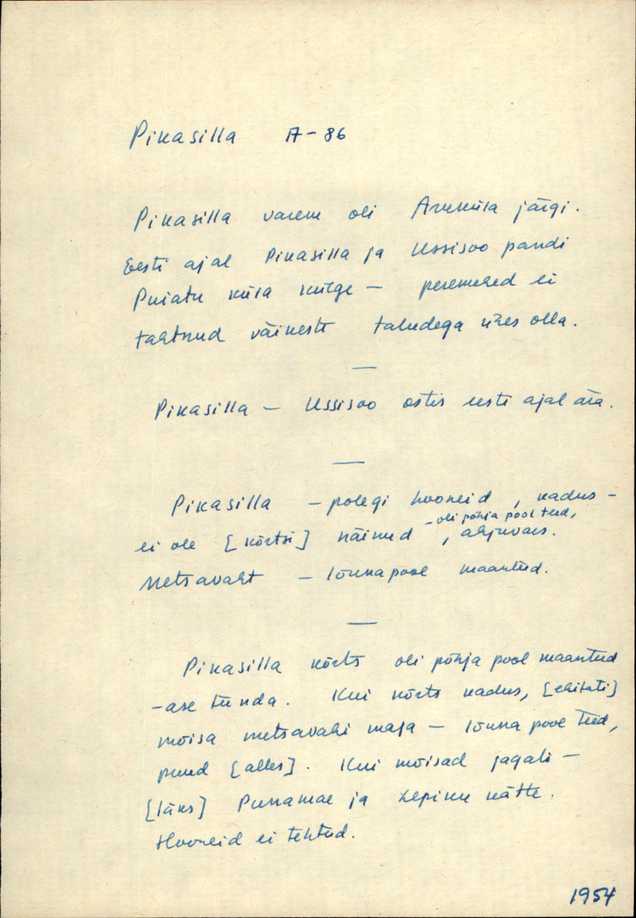 Pikasilla A-86
Pikasilla varem oli Arukula järgi.
Eesti ajal Pikasilla ja Ussisoo pandi
Puiatu küla külge — peremehed ei
tahtnud väikeste taludega üles olla.
—
Pikasilla — Ussisoo ostis eesti ajal ära.
—
Pikasilla — polegi hooneid, kadus —
— oli põhja pool teed,
ei ole [kõrtsi] näinud, ahjuvare.
Metsavaht — lõunapool maanteed.
—
Pikasilla kõrts oli põhja pool maanteed
— ase tunda. Kui kõrts kadus, [ehitati]
mõisa metsavahi maja — lõuna pool teed,
puud [alles]. Kui mõisad jagati —
[läks] Punamäe ja Lepiku kätte.
Hooneid ei tehtud.
1954